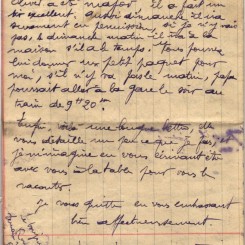 élève a été major, il a fait un
excellent, aussi dimanche il va
sûrement en permission, si je n'y vais
pas, le dimanche matin il ira à la
maison s'il a le temps. Vous pouvez
lui donner un petit paquet pour
moi, s'il n'y va pas le matin, papa
pourrait aller à la gare le soir au
train de 9H 20m.
Enfin, voilà une longue lettre, elle
vous détaille un peu ce que je fais et
je m'imagine en vous écrivant être
avec vous à table pour vous le
raconter.
je vous quitte en vous embrassant
bien affectueusement.